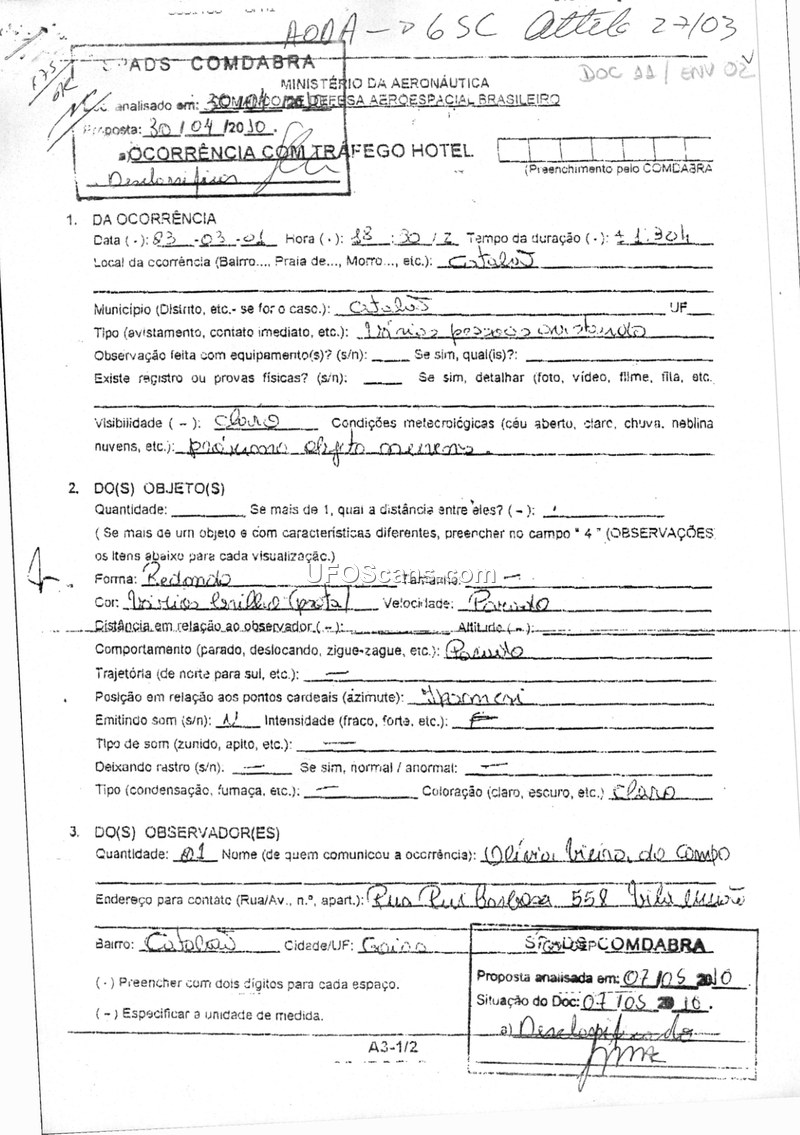 AODA → 6SC Attila 27/03
SPADS COMDABRA
DOC 11 / ENV 02
MINISTÉRIO DA AERONÁUTICA
analisado em: 30/04/2010
COMANDO DE DEFESA AEROESPACIAL BRASILEIRO
Proposta: 30/04/2010.
a) OCORRÊNCIA COM TRÁFEGO HOTEL
Desclassificar
(Preenchimento pelo COMDABRA
1. DA OCORRÊNCIA
Data (·): 83-03-01 Hora (·): 18:30/Z Tempo da duração (·): ± 1.30h
Local da ocorrência (Bairro..., Praia de..., Morro..., etc.): Catalão
Município (Distrito, etc.- se for o caso.): Catalão UF
Tipo (avistamento, contato imediato, etc.): Várias pessoas avistando
Observação feita com equipamento(s)? (s/n): Se sim, qual(is)?:
Existe registro ou provas físicas? (s/n): Se sim, detalhar (foto, vídeo, filme, fita, etc.
Visibilidade (–): claro Condições meteorológicas (céu aberto, claro, chuva, neblina
nuvens, etc.): próximo objeto nuvens.
2. DO(S) OBJETO(S)
Quantidade: Se mais de 1, qual a distância entre eles? (–):
( Se mais de um objeto e com características diferentes, preencher no campo " 4 " (OBSERVAÇÕES
os itens abaixo para cada visualização.)
Forma: Redondo Tamanho: —
UFOScans.com
Cor: Vários brilho (prata) Velocidade: Parado
Distância em relação ao observador (–): Altitude (–):
Comportamento (parado, deslocando, zigue-zague, etc.): Parado
Trajetória (de norte para sul, etc.): —
Posição em relação aos pontos cardeais (azimute):
Emitindo som (s/n): N Intensidade (fraco, forte, etc.): F
Tipo de som (zunido, apito, etc.): —
Deixando rastro (s/n). — Se sim, normal / anormal: —
Tipo (condensação, fumaça, etc.): — Coloração (claro, escuro, etc.) Claro
3. DO(S) OBSERVADOR(ES)
Quantidade: 01 Nome (de quem comunicou a ocorrência): Olívia Vieira do Campo
Endereço para contato (Rua/Av., n.º, apart.): Rua Rui Barbosa 558 Vila
Bairro: Catalão Cidade/UF: Goiás
COMDABRA
(·) Preencher com dois dígitos para cada espaço.
Proposta analisada em: 07/05/2010
Situação do Doc: 07/05/2010.
(–) Especificar a unidade de medida.
a) Desclassificado
A3-1/2